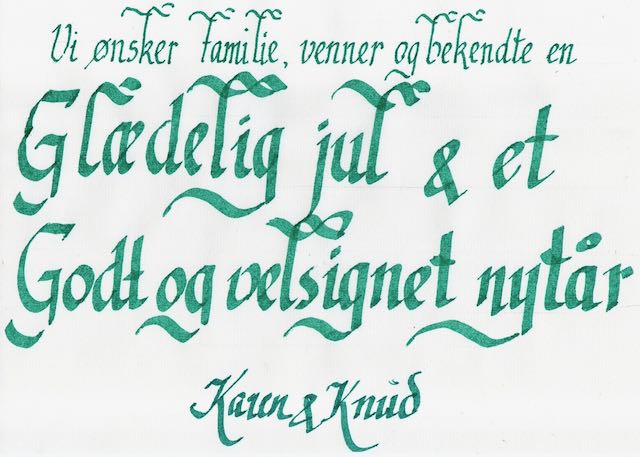 Vi ønsker familie, venner og bekendte en
Glædelig jul & et
Godt og velsignet nytår
Karen & Knud